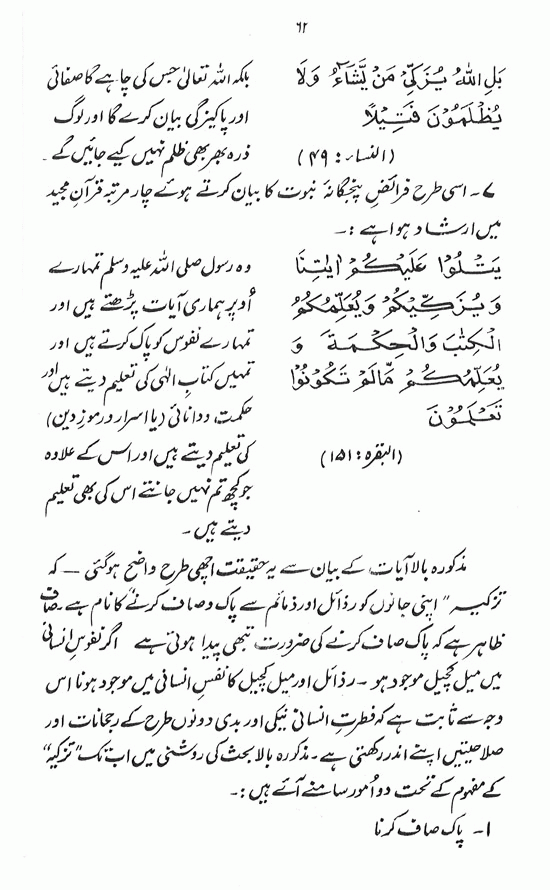 ۶۲
بَلِ اللّٰهُ يُزَكِّيْ مَنْ يَّشَآءُ وَلَا
يُظْلَمُوْنَ فَتِيْلًا
(النساء: ۴۹)
بلکہ اللہ تعالیٰ جس کی چاہے گا صفائی
اور پاکیزگی بیان کرے گا اور لوگ
ذرہ بھر بھی ظلم نہیں کیے جائیں گے۔
۷۔ اسی طرح فرائضِ پنجگانۂ نبوت کا بیان کرتے ہوئے چار مرتبہ قرآنِ مجید
میں ارشاد ہوا ہے :۔
يَتْلُوْا عَلَيْكُمْ اٰيٰتِنَا
وَيُزَكِّيْكُمْ وَيُعَلِّمُكُمُ
الْكِتٰبَ وَالْحِكْمَةَ وَ
يُعَلِّمُكُمْ مَّالَمْ تَكُوْنُوْا
تَعْلَمُوْنَ
(البقرہ: ۱۵۱)
وہ رسول صلی اللہ علیہ وسلم تمہارے
اُوپر ہماری آیات پڑھتے ہیں اور
تمہارے نفوس کو پاک کرتے ہیں اور
تمہیں کتابِ الٰہی کی تعلیم دیتے ہیں اور
حکمت ودانائی (یا اسرار ورموزِ دین)
کی تعلیم دیتے ہیں اور اس کے علاوہ
جو کچھ تم نہیں جانتے اس کی بھی تعلیم
دیتے ہیں۔
مذکورہ بالا آیات کے بیان سے یہ حقیقت اچھی طرح واضح ہوگئی — کہ
تزکیہ" اپنی جانوں کو رذائل اور ذمائم سے پاک وصاف کرنے کا نام ہے۔ صاف
ظاہر ہے کہ پاک صاف کرنے کی ضرورت تبھی پیدا ہوتی ہے اگر نفوسِ انسانی
میں میل کچیل موجود ہو۔ رذائل اور میل کچیل کا نفسِ انسانی میں موجود ہونا اس
وجہ سے ثابت ہے کہ فطرتِ انسانی نیکی اور بدی دونوں طرح کے رجحانات اور
صلاحیتیں اپنے اندر رکھتی ہے۔ مذکورہ بالا بحث کی روشنی میں اب تک "تزکیہ"
کے مفہوم کے تحت دو اُمور سامنے آئے ہیں :۔
۱۔ پاک صاف کرنا